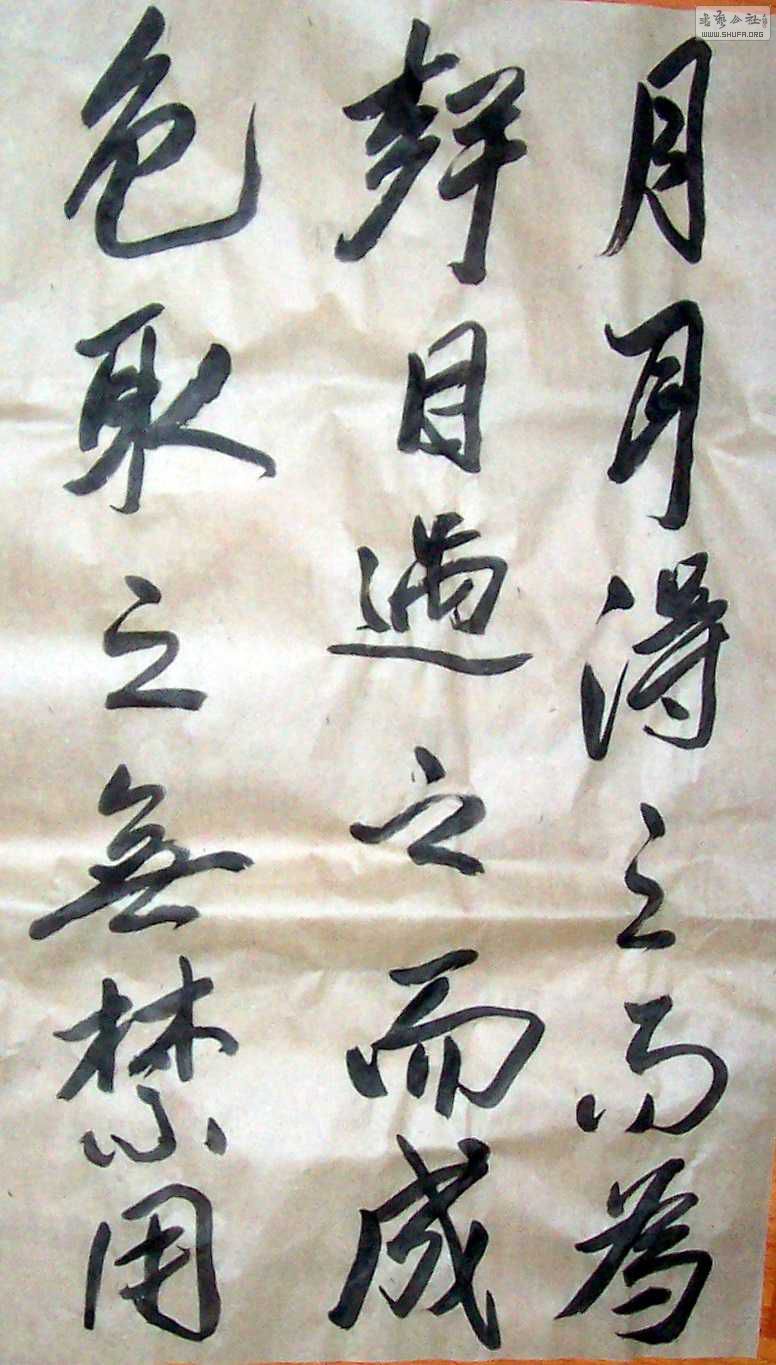 月耳得之而為
聲目遇之而成
色取之無禁用
WWW.SHUFA.ORG